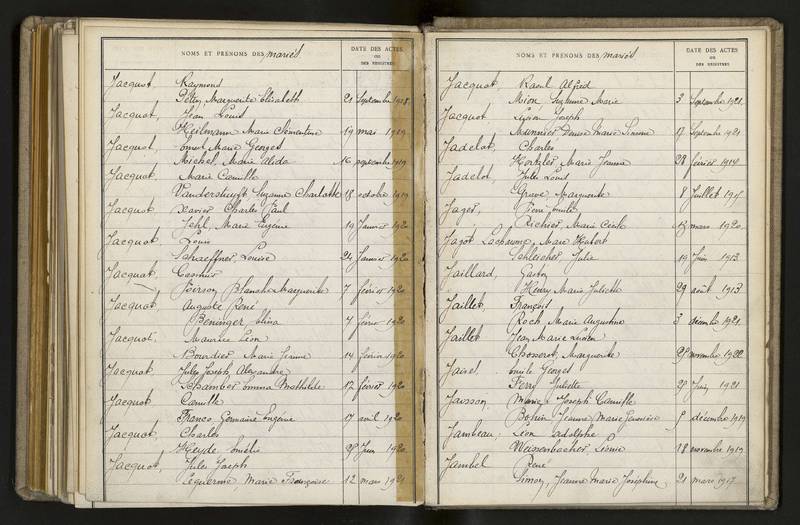 NOMS ET PRENOMS DES mariés
DATE DES ACTES
OU
DES REGISTRES
Jacquot Raymond
Marguerite Elisabeth 21 Septembre 1918
Jacquot, Jean Louis
Heilmann Marie Clémentine 19 mai 1919
Jacquot, Emile Marie Georges
Michel, Marie Alida 16 septembre 1919
Jacquot, Marie Camille
Vanderstuyft, Suzanne Charlotte 18 octobre 1919
Jacquot Xavier Charles Paul
Jehl, Marie Eugénie 19 Janvier 1920
Jacquot Louis
Schaeffner, Louise 24 Janvier 1920
Jacquot, Casimir
Pierson, Blanche Marguerite 7 février 1920
Jacquot, Auguste René
Beninger Elina 7 février 1920
Jacquot, Maurice Léon
Bourdier Marie Jeanne 14 février 1920
Jacquot Jules Joseph Alexandre
Schamber Emma Mathilde 17 février 1920
Jacquot Camille
Franco Germaine Eugénie 17 avril 1920
Jacquot, Charles
Heyde Emélie Juin 1920
Jacquot, Jules Joseph
Marie Françoise 12 mars 1921
NOMS ET PRENOMS DES mariés
DATE DES ACTES
OU
DES REGISTRES
Jacquot, Raoul Alfred
Mion Suzanne Marie 3 Septembre 1921
Jacquot Lucien Joseph
Meunnier Denise Marie Simone 17 Septembre 1921
Jadelot, Charles
Marie Jeanne 28 février 1914
Jadelot, Jules Louis
Marguerite 8 Juillet
Jager, René Emile
Richier, Marie Cécile mars 1920
Jagot Lachaume, Marc Hubert
Schleicher Julie 19 Juin 1913
Jaillard Gaston
Henry Marie Juliette 29 août 1913
Jaillet, François
Roch Marie Augustine 3 décembre 1921
Jaillet Jean Marie Lucien
Chosserot, Marguerite 25 novembre 1922
Emile Georges
Ferry Juliette 28 Juin 1921
Jaisson, Marie Joseph Camille
Jeanne Marie Geneviève décembre 1919
Jambeau, Léon Adolphe
Weissenbacher, Léonie 18 novembre 1919
Jambel René
Simon, Jeanne Marie Joséphine 21 mars 1917